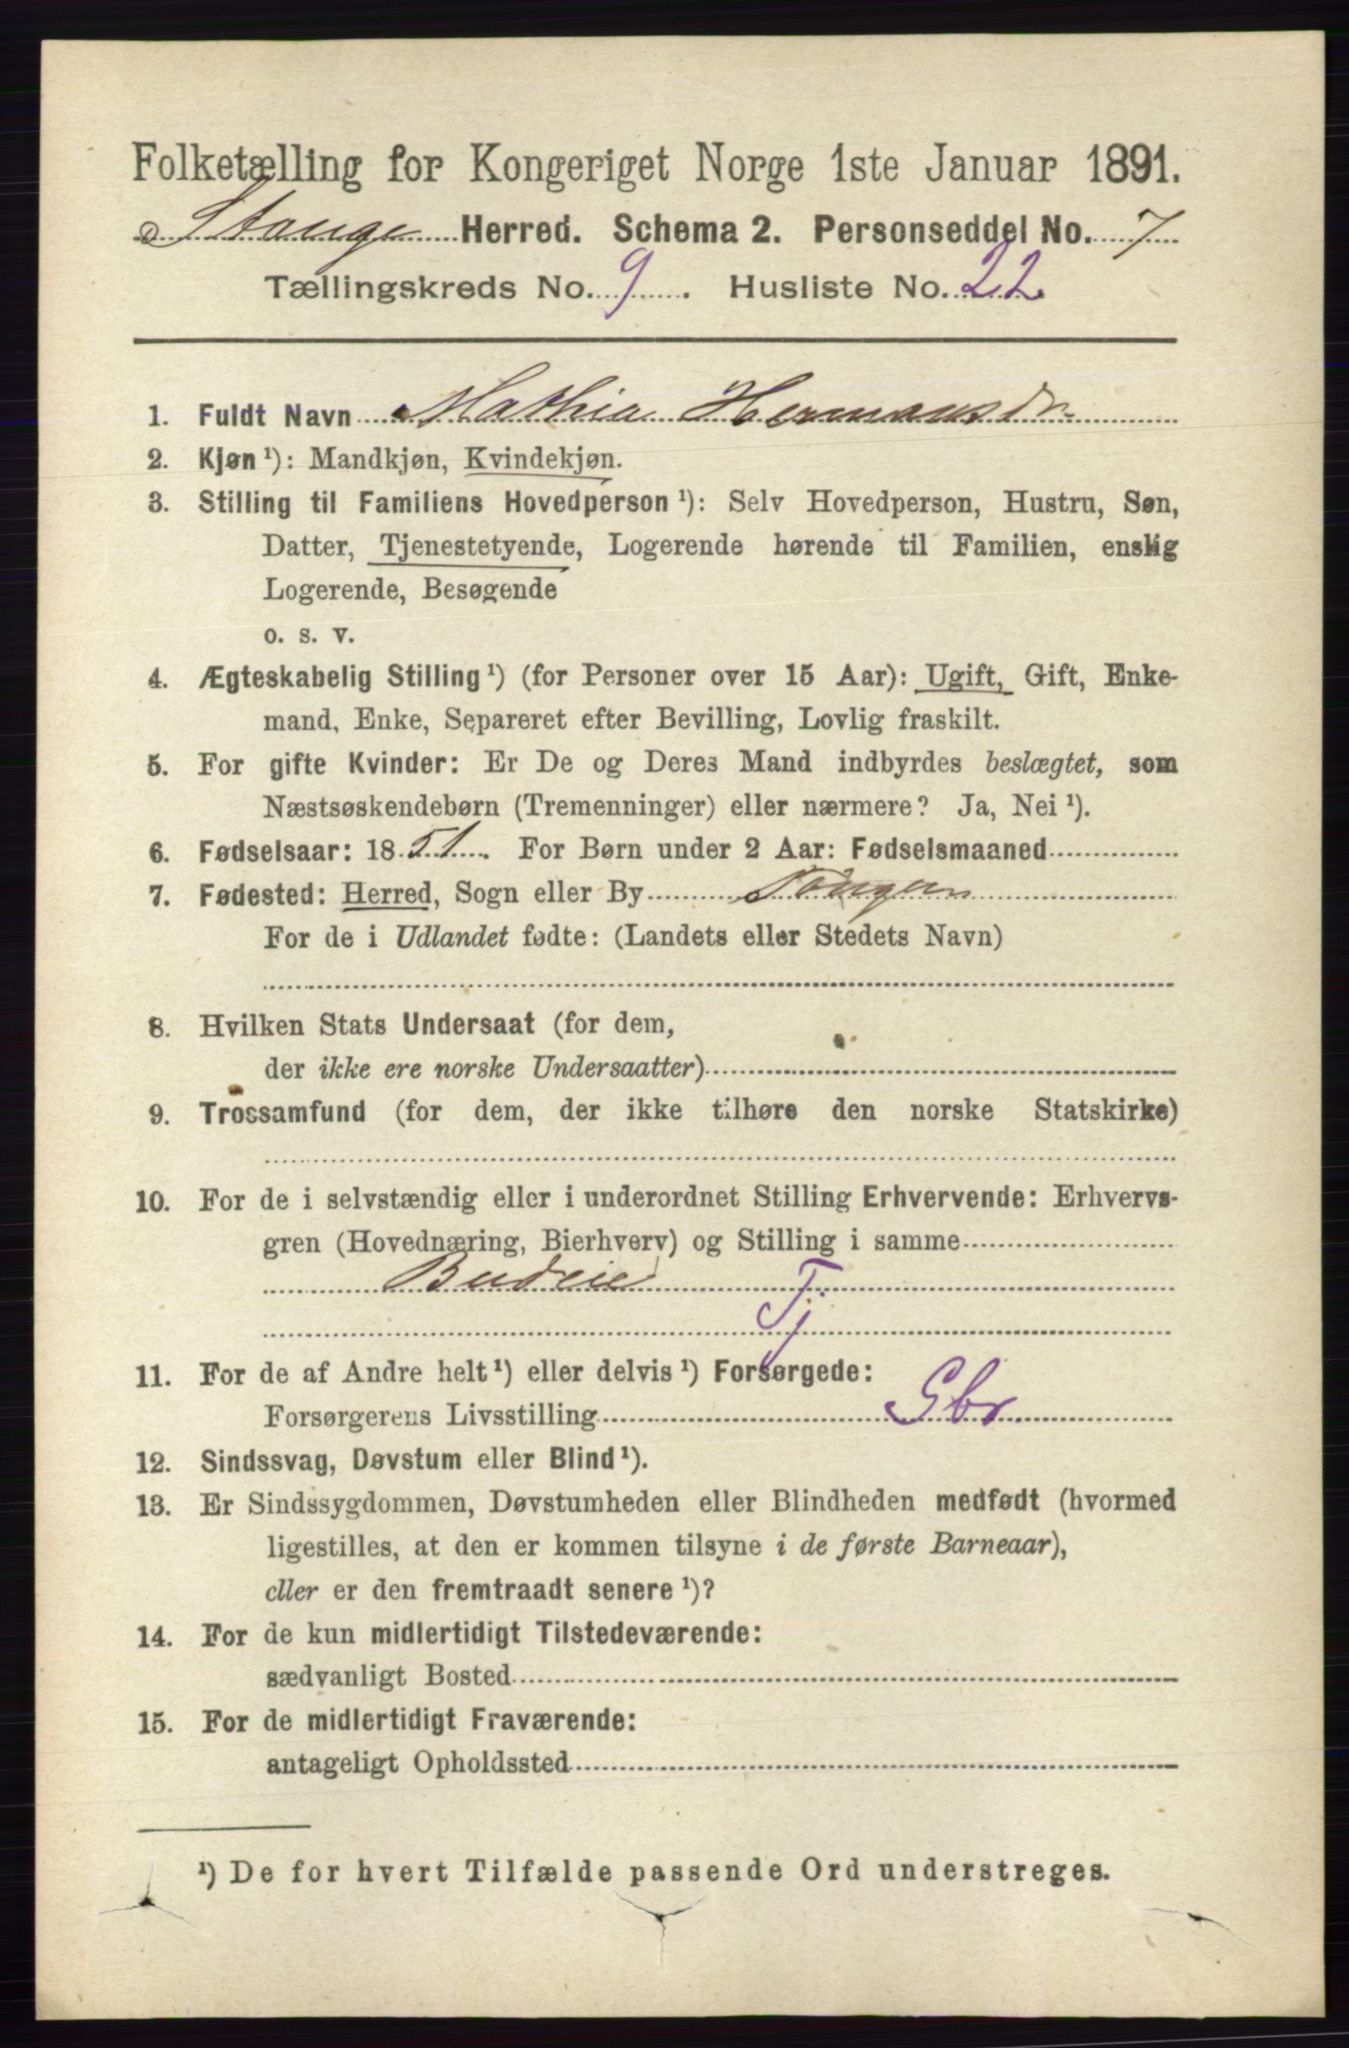 Folketælling for Kongeriget Norge 1ste Januar 1891.
Stange Herred. Schema 2. Personseddel No. 7
Tællingskreds No. 9. Husliste No. 22
1. Fuldt Navn Mathia Hermansdr.
2. Kjøn ¹): Mandkjøn, Kvindekjøn.
3. Stilling til Familiens Hovedperson ¹): Selv Hovedperson, Hustru, Søn,
Datter, Tjenestetyende, Logerende hørende til Familien, enslig
Logerende, Besøgende
o. s. v.
4. Ægteskabelig Stilling ¹) (for Personer over 15 Aar): Ugift, Gift, Enke-
mand, Enke, Separeret efter Bevilling, Lovlig fraskilt.
5. For gifte Kvinder: Er De og Deres Mand indbyrdes beslægtet, som
Næstsøskendebørn (Tremenninger) eller nærmere? Ja, Nei ¹).
6. Fødselsaar: 1851. For Børn under 2 Aar: Fødselsmaaned
7. Fødested: Herred, Sogn eller By Tangen
For de i Udlandet fødte: (Landets eller Stedets Navn)
8. Hvilken Stats Undersaat (for dem,
der ikke ere norske Undersaatter)
9. Trossamfund (for dem, der ikke tilhøre den norske Statskirke)
10. For de i selvstændig eller i underordnet Stilling Erhvervende: Erhvervs-
gren (Hovednæring, Bierhverv) og Stilling i samme
Budeie
Tj
11. For de af Andre helt ¹) eller delvis ¹) Forsørgede:
Forsørgerens Livsstilling Gbr
12. Sindssvag, Døvstum eller Blind ¹).
13. Er Sindssygdommen, Døvstumheden eller Blindheden medfødt (hvormed
ligestilles, at den er kommen tilsyne i de første Barneaar),
eller er den fremtraadt senere ¹)?
14. For de kun midlertidigt Tilstedeværende:
sædvanligt Bosted
15. For de midlertidigt Fraværende:
antageligt Opholdssted
¹) De for hvert Tilfælde passende Ord understreges.